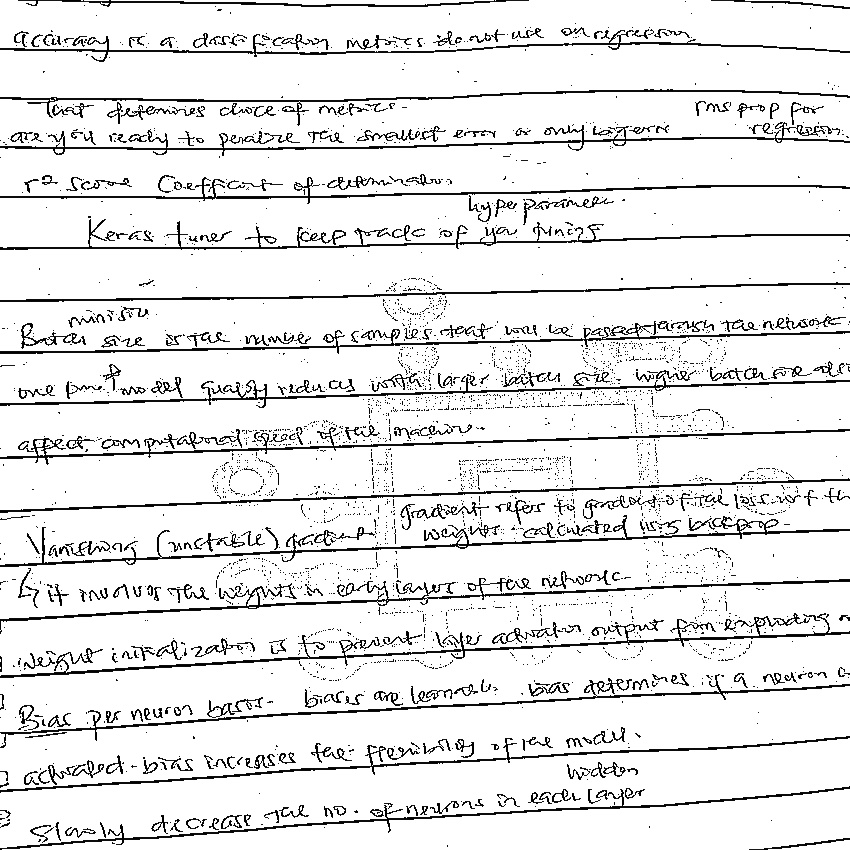 accuracy is a classification metrics do not use on regression
That determines choice of metrics.
rms prop for regression
are you ready to penalize the smallest error or only larger
r² score Coefficient of determination
hyperparameter.
Keras tuner to keep track of your tuning
mini
Batch size is the number of samples that will be passed through the network
one time model quality reduces with larger batch size. higher batch size also
affect computational speed of the machine.
gradient refers to gradient of the loss wrt the
weights - calculated using backprop
Vanishing (unstable) gradient
↳ it involves the weights in early layers of the network
weight initialization is to prevent layer activation output from exploding
Bias per neuron basis. biases are learnable. bias determines if a neuron
activated. bias increases the flexibility of the model.
hidden
Slowly decrease the no. of neurons in each layer